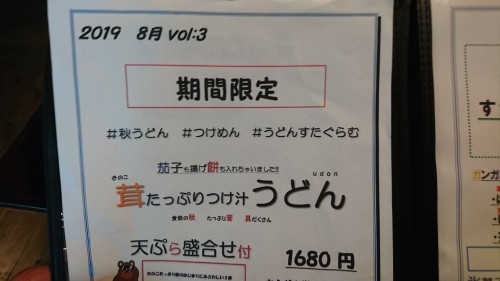 2019 8月 vol:3
期間限定
#秋うどん #つけめん #うどんすたぐらむ
茄子も揚げ餅も入れちゃいました!!
きのこ
udon
茸たっぷりつけ汁うどん
食欲の秋 たっぷり茸 具だくさん
天ぷら盛合せ付
1680円
す
ガンガ